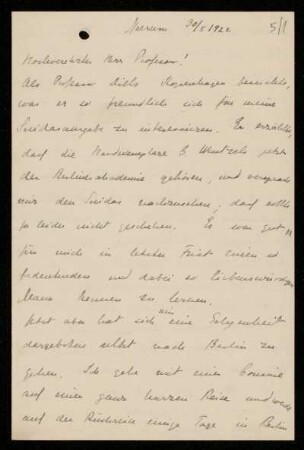 Naerum 30/5 1922
5/1
Hochverehrter Herr Professor!
Als Professor Diels Kopenhagen besuchte,
war er so freundlich sich für meine
Suidasausgabe zu interessieren. Er erzählte,
daß die Handexemplare C. Wentzels jetzt
der Berlinerakademie gehören, und versprach
mir den Suidas nachzusehen, das sollte
ja leider nicht geschehen. Es war gut
für mich in letzter Frist einen so
bedeutenden und dabei so liebenswürdigen
Mann kennen zu lernen.
Jetzt aber hat sich mir eine Gelegenheit
dargeboten selbst nach Berlin zu
gehen. Ich gehe mit einer Cousine
auf einer ganz kurzen Reise und werde
auf der Rückreise einige Tage in Berlin